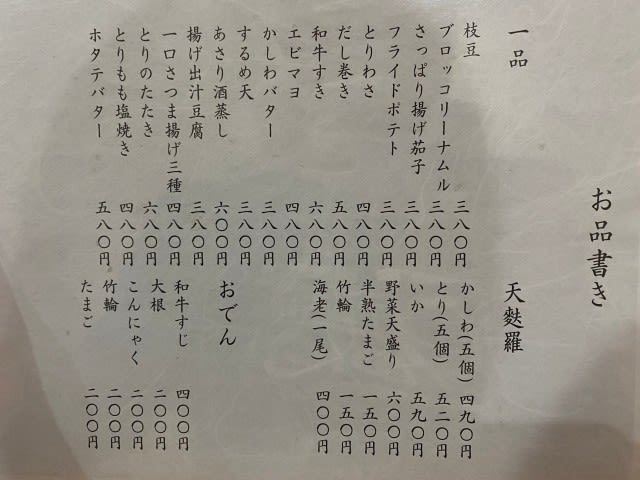 お品書き
一品
枝豆 三八〇円
ブロッコリーナムル 三八〇円
さっぱり揚げ茄子 三八〇円
フライドポテト 三八〇円
とりわさ 四八〇円
だし巻き 五八〇円
和牛すき 六八〇円
エビマヨ 四八〇円
かしわバター 三八〇円
するめ天 三八〇円
あさり酒蒸し 六〇〇円
揚げ出汁豆腐 三八〇円
一口さつま揚げ三種 四八〇円
とりのたたき 六八〇円
とりもも塩焼き 四八〇円
ホタテバター 五八〇円
天麩羅
かしわ(五個) 四九〇円
とり(五個) 五二〇円
いか 五九〇円
野菜天盛り 六〇〇円
半熟たまご 一五〇円
竹輪 一五〇円
海老(一尾) 四〇〇円
おでん
和牛すじ 四〇〇円
大根 二〇〇円
こんにゃく 二〇〇円
竹輪 二〇〇円
たまご 二〇〇円